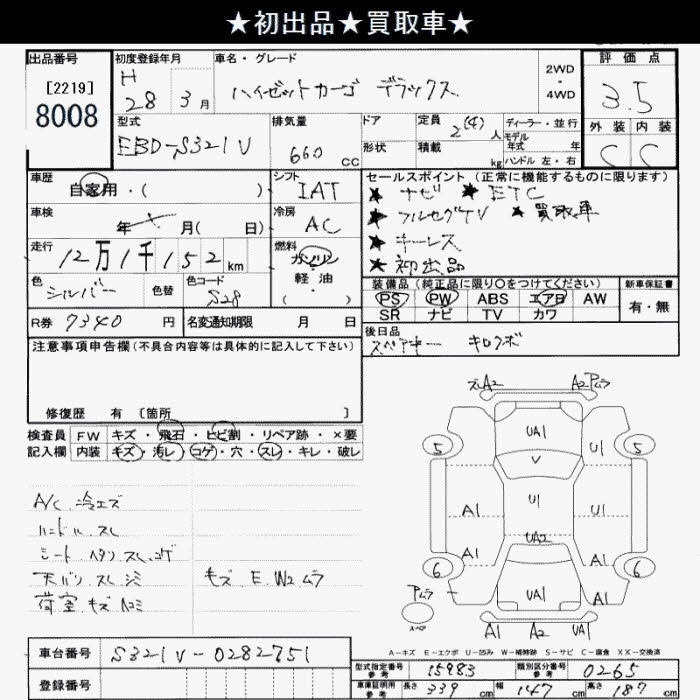 ★初出品★買取車★
出品番号 初度登録年月 車名・グレード 評価点
[2219] 8008 H 28 3月 ハイゼットカーゴ デラックス 2WD・4WD 3.5
型式 EBD-S321V 排気量 660 CC ドア 形状 定員 2(4)人 積載 kg ディーラー・並行 モデル年式 年式 ハンドル 左・右 外装 内装 C C
車歴 自家用・( ) シフト IAT セールスポイント (正常に機能するものに限ります)
★ ナビ ★ ETC
車検 年 月( 日) 冷房 AC ★ フルセグTV ★ 買取車
★ キーレス
走行 12万1千152km 燃料 ガソリン・軽油・( ) ★ 初出品
色 シルバー 色替 色コード S28 装備品 (純正品に限り○をつけてください) 新車保証書
PS PW ABS エアB AW 有・無
SR ナビ TV カワ
R券 7340 円 名変通知期限 月 日 後日品
スペアキー キロクボ
注意事項申告欄 (不具合内容等は具体的に記入して下さい)
修復歴 有 [箇所 ]
検査員 FW キズ・飛石・ヒビ割・リペア跡・×要
記入欄 内装 キズ・汚レ・コゲ・穴・スレ・キレ・破レ
A/C 冷エズ
ハンドル スレ
シート ヘタリ スレ コゲ
天バリ スレ シミ キズ E W2 ムラ
荷室 キズ ヘコミ
ズA2 A2 ムラ
UA1
5 V U1 5
A1 U1 U1
A1 UA2 A1
6 6
アムラ UA1 A1
スペア
A1 A2 UA1
A-キズ E-エクボ U-凹み W-補修跡 S-サビ C-腐食 XX-交換済
車台番号 S321V-0282751
登録番号
型式指定番号 参考 15983 類別区分番号 参考 0265
車庫証明用 参考 長さ 339 cm 幅 147 cm 高さ 187 cm